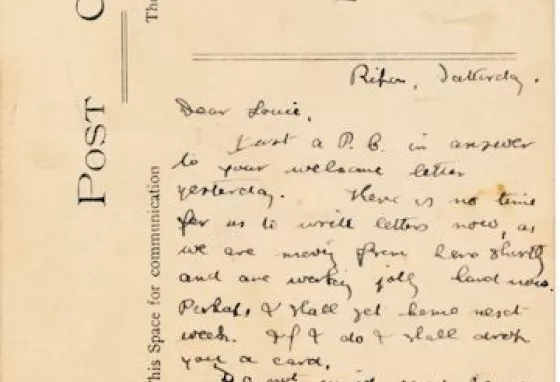 POST C
This Space for communication
The
Ripon, Saturday.
Dear Louie,
Just a P.C. in answer
to your welcome letter
yesterday. There is no time
for us to write letters now, as
we are moving from here shortly
and are working jolly hard now.
Perhaps I shall get home next
week. If I do I shall drop
you a card.
Do not